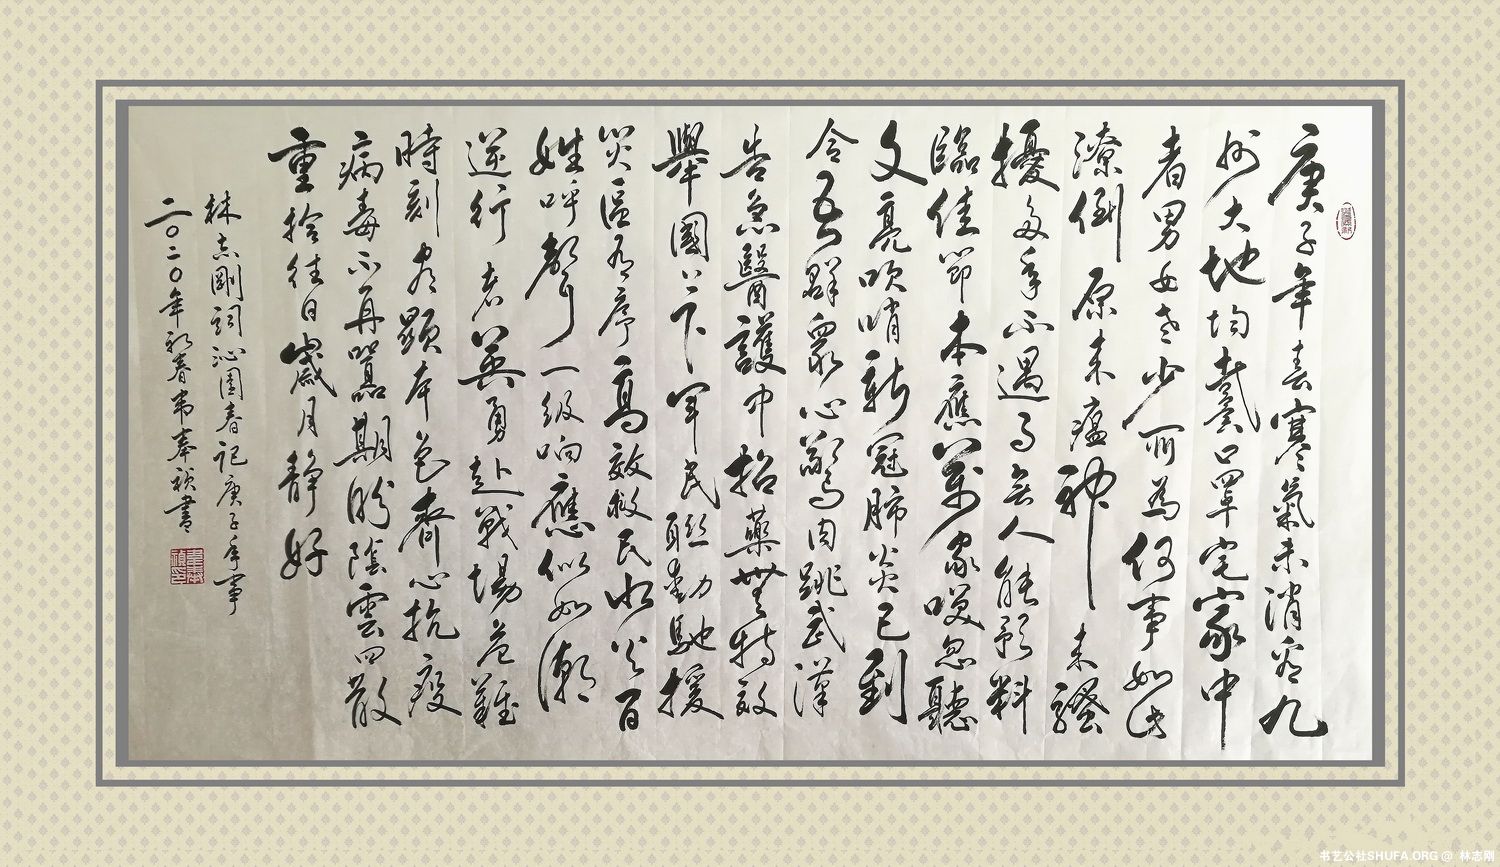 庚子年春寒氣未消看九
州大地均戴口罩宅家中
者男女老少所為何事如此
潦倒原来瘟神来騷
擾多年不遇了無人能預料
臨佳節本應萬家咲忽聽
文亮吹哨新冠肺炎已到
令吾群眾心驚肉跳武漢
告急醫護中招藥無特效
舉國上下軍民聯動馳援
災區有序高效救民水火百
姓呼聲一级响應似如潮
逆行者英勇赴戰場危難
時刻盡顯本色齊心抗疫
病毒不再囂期盼陰雲四散
重拾往日歲月静好
林志剛詞沁園春记庚子年事
二〇二〇年初春韦奉祯書
书艺公社SHUFA.ORG @ 林志刚